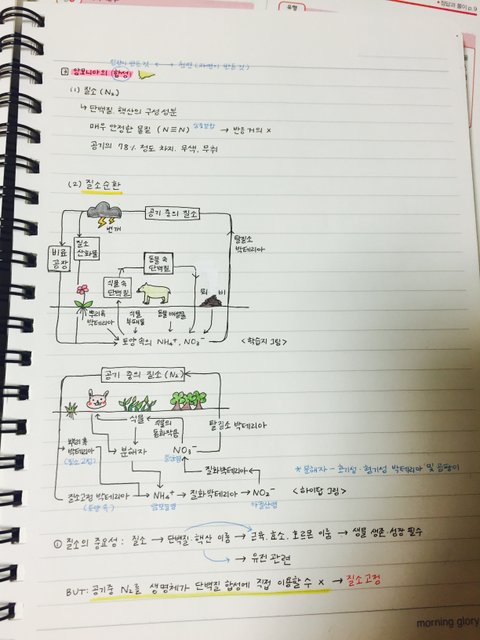 유형
• 정답과 풀이 p.9
인간이 만든 것 ←→ 천연 (자연이 만든 것)
암모니아의 (합성)
(1) 질소 (N₂)
↳ 단백질, 핵산의 구성 성분
매우 안정한 물질 (N≡N) 삼중결합 → 반응 거의 x
공기의 78% 정도 차지, 무색, 무취
(2) 질소순환
공기 중의 질소
번개
탈질소 박테리아
비료 공장
질소 산화물
동물 속 단백질
식물 속 단백질
퇴비
뿌리혹 박테리아
식물 부패물
동물 배설물
토양 속의 NH₄⁺, NO₃⁻
<학습지 그림>
공기 중의 질소 (N₂)
식물
식물의 동화작용
탈질소 박테리아
뿌리혹 박테리아
(질소고정)
분해자
NO₃⁻
질산이온
질화박테리아
* 분해자 - 호기성·혐기성 박테리아 및 곰팡이
질소고정 박테리아 → NH₄⁺ → 질화박테리아 → NO₂⁻
(토양 속)
암모늄이온
아질산이온
<하이탑 그림>
① 질소의 중요성 : 질소 → 단백질, 핵산 이룸 → 근육, 효소, 호르몬 이룸 → 생물 생존·성장 필수
→ 유전 관련
BUT: 공기중 N₂를 생명체가 단백질 합성에 직접 이용할 수 x → 질소고정
morning glory